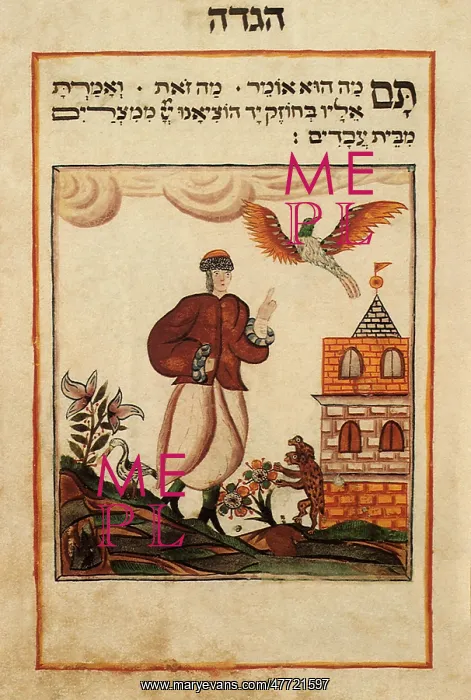 הגדה
תָּם מַה הוּא אוֹמֵר · מַה זֹאת · וְאָמַרְתָּ
אֵלָיו בְּחוֹזֶק יָד הוֹצִיאָנוּ יְיָ מִמִצְרַיִם
מִבֵּית עֲבָדִים :
ME
PL
ME
PL
www.maryevans.com/47721597